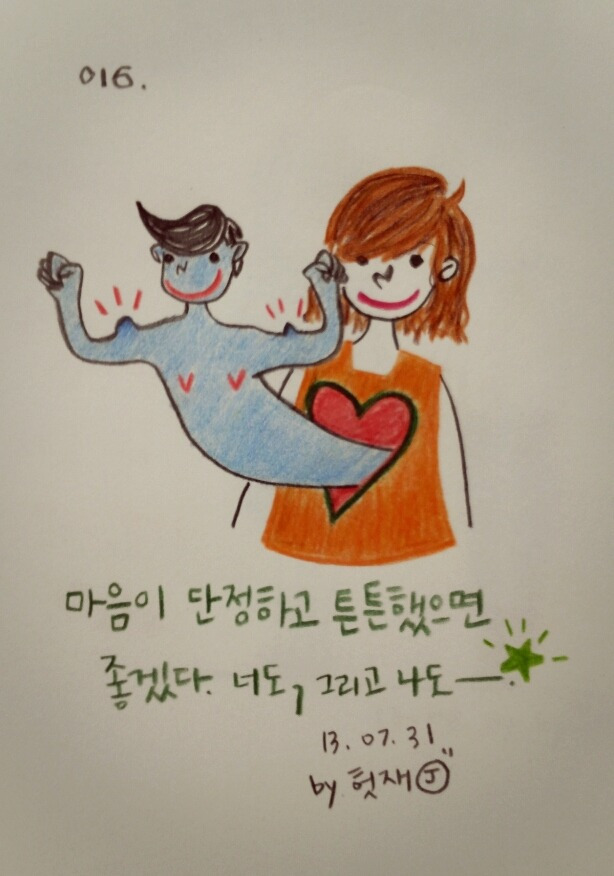 016.
마음이 단정하고 튼튼했으면
좋겠다. 너도, 그리고 나도—.
13.07.31
by. 헛재 J